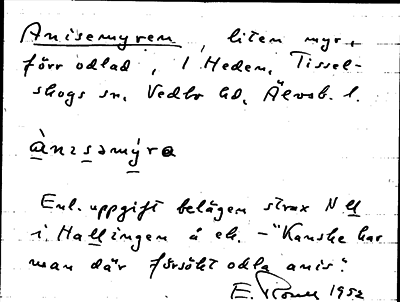 Anisemyren, liten myr,
förr odlad, i Heden, Tissel-
skogs sn, Vedbo hd, Älvsb. l.
ànisəmýra
Enl. uppgift belägen strax N
i Hallingen å ek. - "Kanske har
man där försökt odla anis".
E. 1952